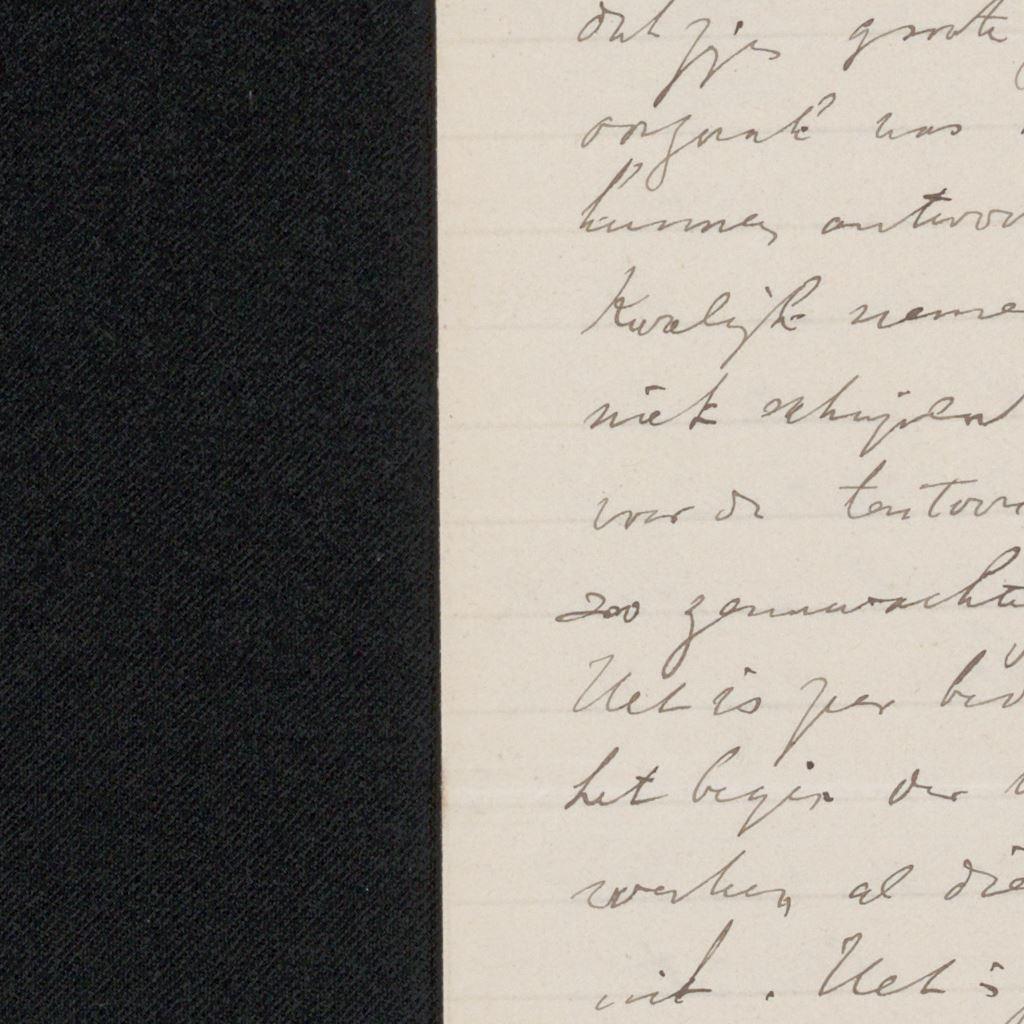 dat zij groote
oorzaak was
kunnen antwoor
Kwalijk neme
niet schrijven
voor de tentoon
zoo zenuwachtig
Het is per
het begin der
werken al die
uit. Het is